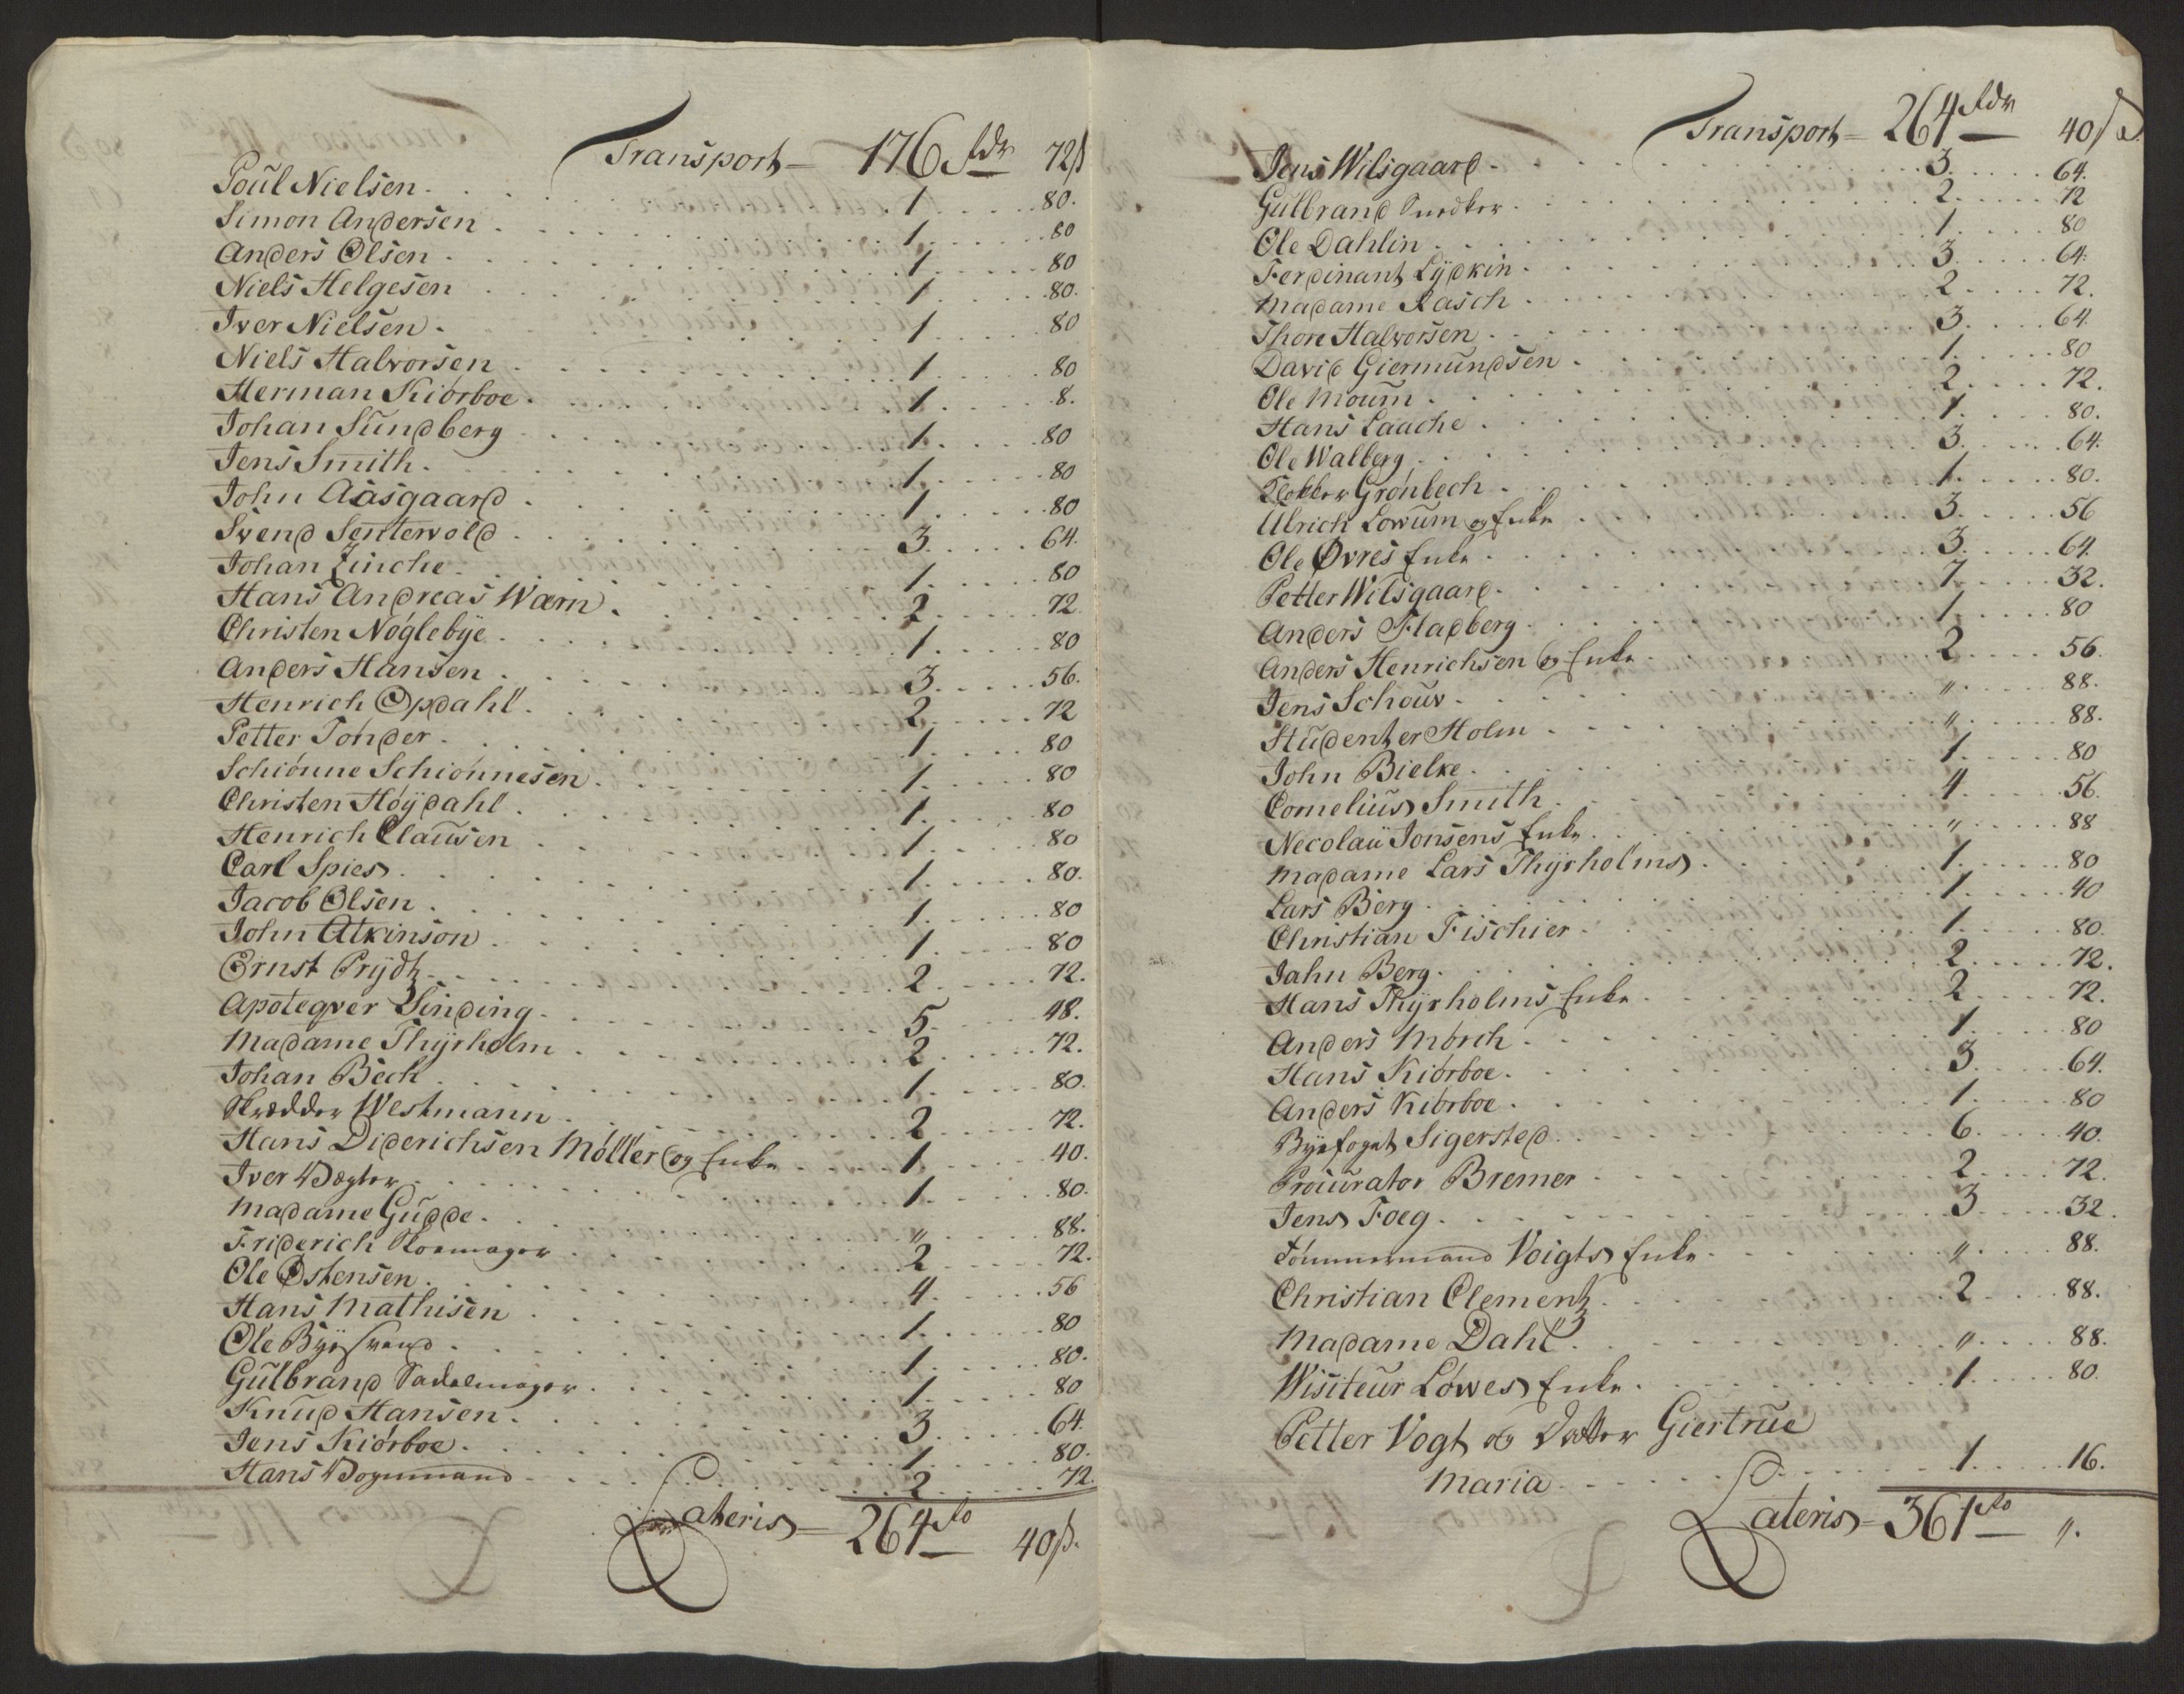 Transport 176 Rdr 72 ß
Poul Nielsen 1 80.
Simon Andersen 1 80
Anders Olsen 1 80
Niels Helgesen 1 80.
Iver Nielsen 1 80
Niels Halvorsen 1 80
Herman Kiørboe 1 8.
Johan Sundberg 1 80
Jens Smith 1 80
John Aasgaard 1 80
Svend Sentervold 3 64.
Johan Zinche 1 80
Hans Andreas Wærn 2 72.
Christen Nøglebye 1 80
Anders Hansen 3 56.
Henrich Opdahl 2 72
Petter Tønder 1 80
Schiønne Schiønnesen 1 80
Christen Høÿdahl 1 80
Henrich Clausen 1 80
Carl Spies 1 80.
Jacob Olsen 1 80
John Atkinson 1 80
Ernst Prÿdtz 2 72.
Apoteqver Sinding 5 48.
Madame Thyrholm 2 72.
Johan Bech 1 80.
Skrædder Westmann 2 72.
Hans Diderichsen Møller og Enke 1 40.
Iver Vægter 1 80.
Madame Gudde " 88.
Friderich Skoemager 2 72.
Ole Østensen 4 56
Hans Mathisen 1 80
Ole Byesvend 1 80.
Gulbrand Sadelmager 1 80
Knud Hansen 3 64.
Jens Kiørboe 1 80.
Hans Vognmand 2 72.
Lateris 264 Rd 40 ß.
Transport 264 Rdr 40 ß
Jens Wilsgaard 3 64.
Gulbrand Snedker 2 72
Ole Dahlin 1 80
Ferdinant Lÿdkin 3 64.
Madame Rasch 2 72.
Thore Halvorsen 3 64.
David Giermundsen 1 80
Ole Moum 2 72.
Hans Laache 1 80.
Ole Walberg 3 64.
Klokker Grønbech 1 80.
Ulrich Lowum og Enke 3 56
Ole Øvres Enke 3 64.
Petter Wilsgaard 7 32.
Anders Fladberg 1 80
Anders Henrichsen og Enke 2 56.
Jens Schouv " 88.
Studenter Holm " 88.
John Bielke 1 80
Cornelius Smith 4 56.
Necolau Jonsens Enke " 88
Madame Lars Thÿrholms 1 80
Lars Berg 1 40
Christian Fischier 1 80.
Jahn Berg 2 72.
Hans Thÿrholms Enke 2 72.
Anders Mørch 1 80
Hans Kiørboe 3 64.
Anders Kiørboe 1 80
Byefoget Sigersted 6 40.
Procurator Bremer 2 72.
Jens Foeg 3 32.
Tømmermand Voigts Enke " 88.
Christian Clementz 2 88.
Madame Dahl " 88.
Visiteur Løwes Enke 1 80.
Petter Vogt og Datter Giertrue
Maria 1 16.
Lateris 361 Rd ".